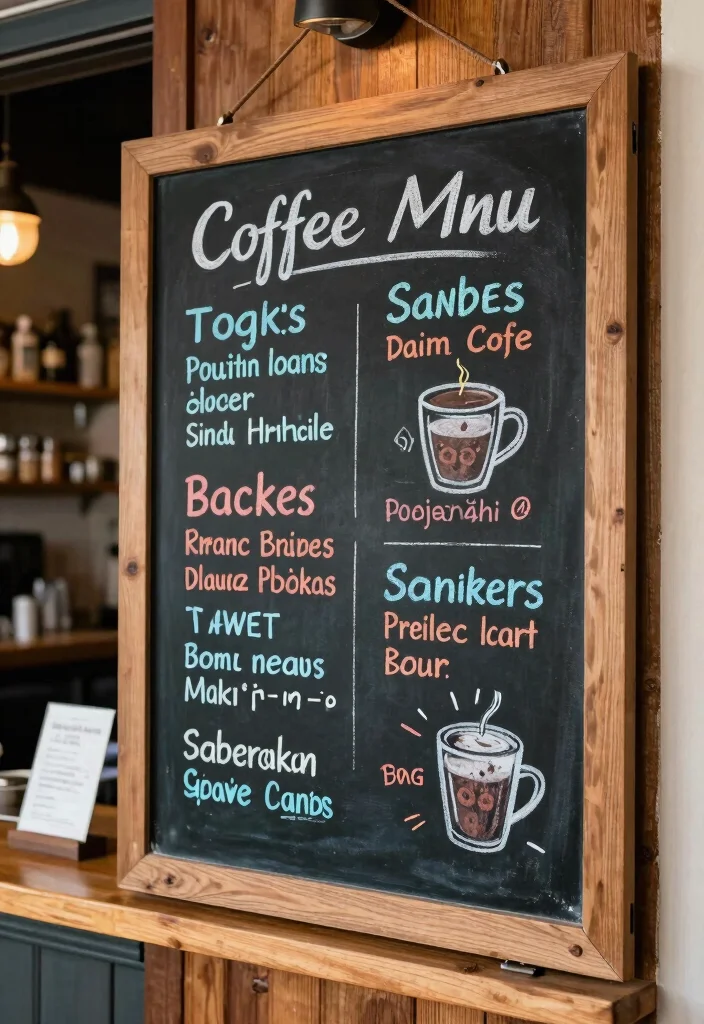 Coffee Mnu
Togk's
Pouitın loans
olocer
Sindı Hrıhcile
Backes
Rrranc Bnipes
Dlauız Pbokas
TAWET
Bomı neaus
Saberakan
Gpave Canbs
Sanbes
Daim Cofe
Sanikers
Preilec lcart
Bour.
BaG